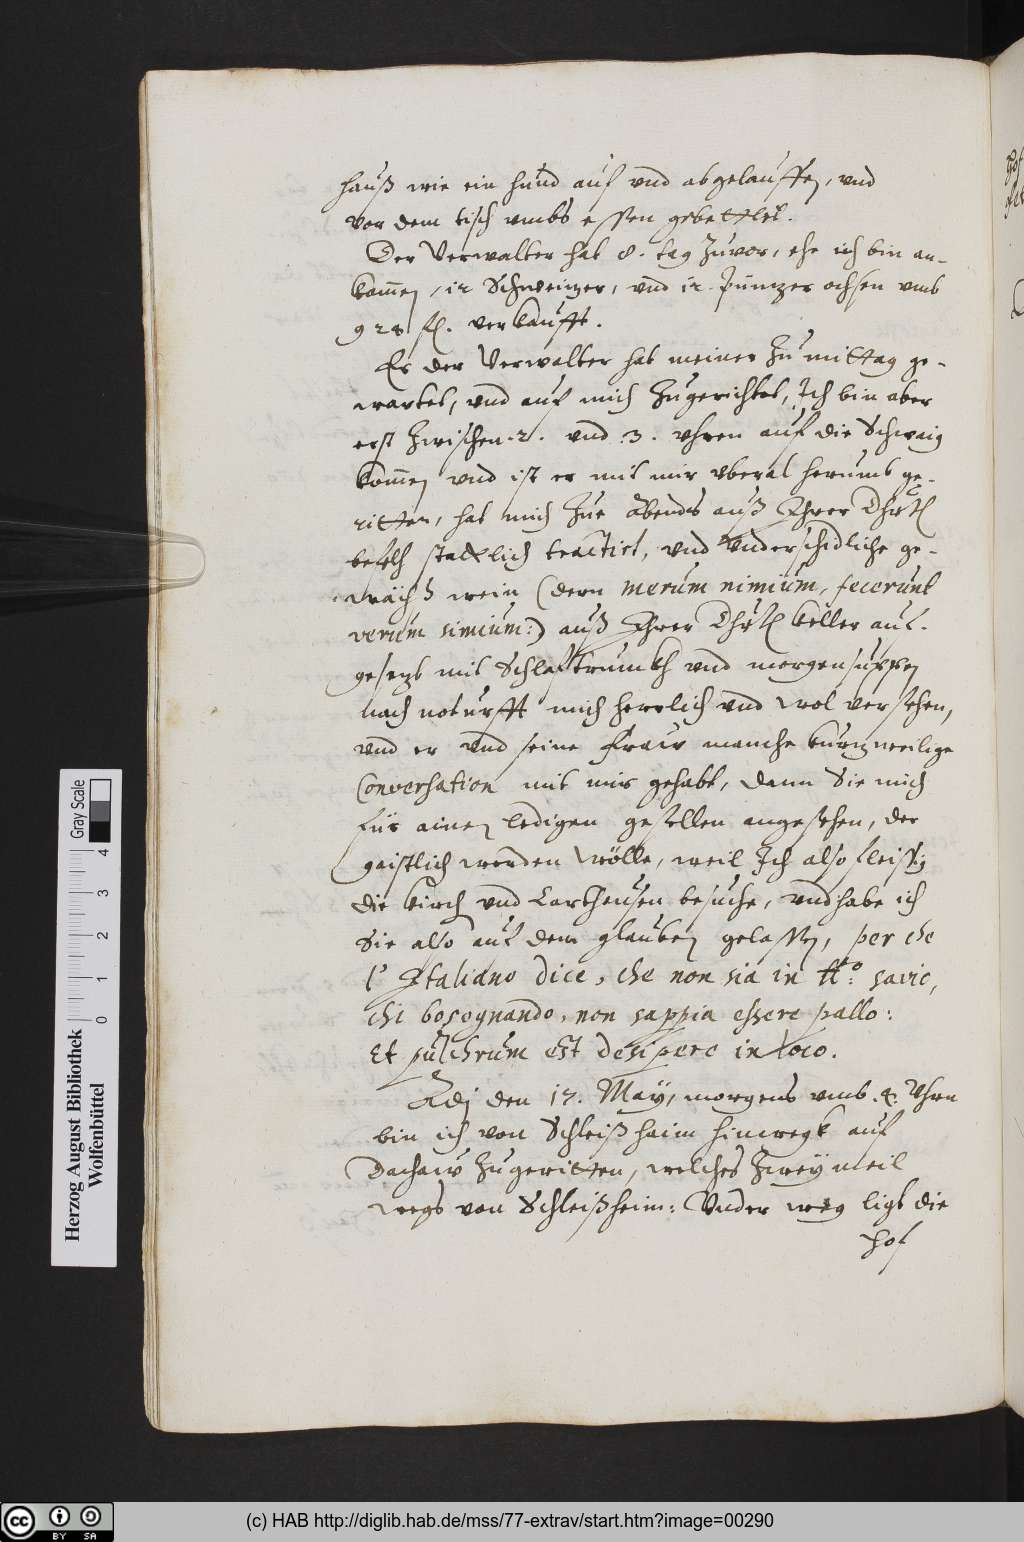 hauß wie ein hund auf vnd abgelauffen, vnd
vor dem tisch vmbs essen gebettlet.
Der Verwalter hat 8. tag zuvor, ehe ich bin an-
kom̄en, 12 Schweitzer, vnd 12. Püntzer ochsen vmb
928 fl. verkaufft.
Er der Verwalter hat meiner zu mittag ge-
wartet, vnd auf mich zugerichtet, Ich bin aber
erst zwischen .2. vnd .3. vhren auf die Schwaig
kom̄en vnd ist er mit mir vberal herumb ge-
ritten, hat mich zue Abends auß Ihrer Dhrt
befelh statlich tractirt, vnd vnderschidliche ge-
wächs wein (dern merum nimium, fecerunt
verum simium:) auß Ihrer Dhrt keller auf-
gesezt mit Schlaftrunkh vnd morgensuppen
nach noturfft mich herrlich vnd wol versehen,
vnd er vnd seine fraw manche kurzweilige
Conversation mit mir gehabt, dann Sie mich
für ainen ledigen gesellen angesehen, der
gaistlich werden wölle, weil Ich also fleissig
die kirch vnd Cartheusen besuche, vnd habe ich
Sie also auf dem glauben gelassen, per che
l' Italiano dice, che non sia in tt.o savio,
chi bosognando, non sappia essere pallo:
Et pulchrum est desipere in loco.
Adj den 17. May, morgens vmb .4. Vhrn
bin ich von Schleißhaim hinwegk auf
Dachaw zugeritten, welches zwey meil
wegs von Schleißheim: Vnder weg ligt die
Hof
Herzog August Bibliothek
Wolfenbüttel
Gray Scale
0 1 2 3 4
(c) HAB http://diglib.hab.de/mss/77-extrav/start.htm?image=00290
cc BY SA